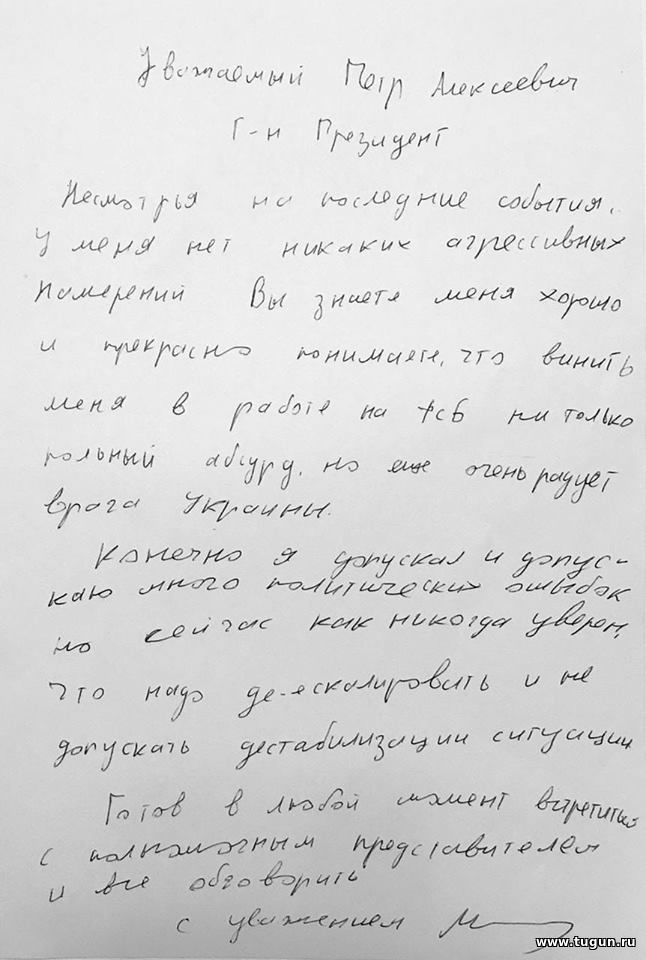 Уважаемый Петр Алексеевич
Г-н Президент
Несмотрья на последние события,
у меня нет никаких агрессивных
намерений Вы знаете меня хорошо
и прекрасно понимаете, что винить
меня в работе на Фсб ни только
польный абсурд, но еще очень радует
врага Украины.
Конечно я допускал и допус-
каю много политических ошыбок
но сейчас как никогда уверен,
что надо де-ескалировать и не
допускать дестабилизации ситуации
Готов в любой момент встретиться
с полномочным представителем
и все обговорить
с уважением
www.tugun.ru